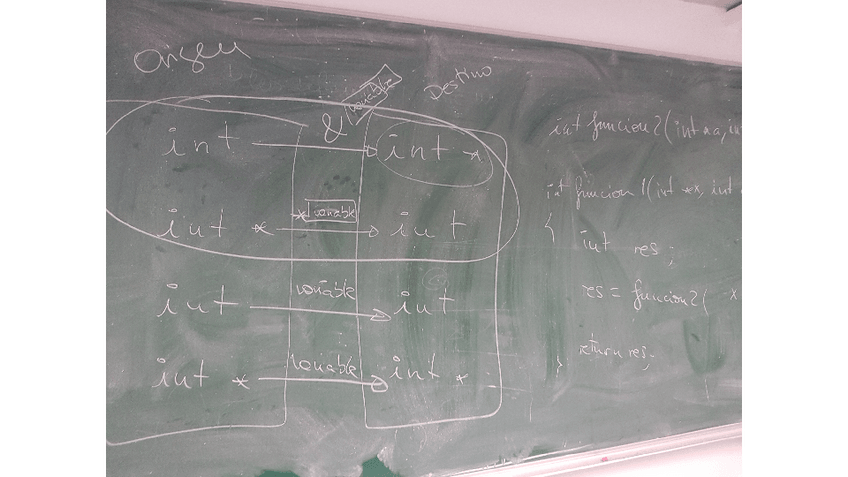 Origen
Destino
int & variable int *
int * * variable int
int variable int
int * variable int *
int funcion2(int *a, in
int funcion1(int *x, int
{
int res;
res = funcion2( x
return res;
}